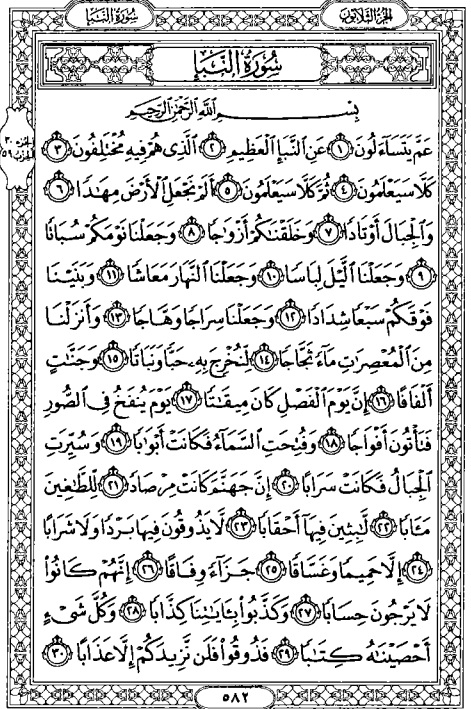 سُورَةُ النَّبَإِ الجُزءُ الثَّلَاثُونَ
سُورَةُ النَّبَإِ
بِسْمِ ٱللَّهِ ٱلرَّحْمَٰنِ ٱلرَّحِيمِ
عَمَّ يَتَسَآءَلُونَ ١ عَنِ ٱلنَّبَإِ ٱلْعَظِيمِ ٢ ٱلَّذِى هُمْ فِيهِ مُخْتَلِفُونَ ٣
كَلَّا سَيَعْلَمُونَ ٤ ثُمَّ كَلَّا سَيَعْلَمُونَ ٥ أَلَمْ نَجْعَلِ ٱلْأَرْضَ مِهَٰدًا ٦
وَٱلْجِبَالَ أَوْتَادًا ٧ وَخَلَقْنَٰكُمْ أَزْوَٰجًا ٨ وَجَعَلْنَا نَوْمَكُمْ سُبَاتًا
٩ وَجَعَلْنَا ٱلَّيْلَ لِبَاسًا ١٠ وَجَعَلْنَا ٱلنَّهَارَ مَعَاشًا ١١ وَبَنَيْنَا
فَوْقَكُمْ سَبْعًا شِدَادًا ١٢ وَجَعَلْنَا سِرَاجًا وَهَّاجًا ١٣ وَأَنزَلْنَا
مِنَ ٱلْمُعْصِرَٰتِ مَآءً ثَجَّاجًا ١٤ لِّنُخْرِجَ بِهِۦ حَبًّا وَنَبَاتًا ١٥ وَجَنَّٰتٍ
أَلْفَافًا ١٦ إِنَّ يَوْمَ ٱلْفَصْلِ كَانَ مِيقَٰتًا ١٧ يَوْمَ يُنفَخُ فِى ٱلصُّورِ
فَتَأْتُونَ أَفْوَاجًا ١٨ وَفُتِحَتِ ٱلسَّمَآءُ فَكَانَتْ أَبْوَٰبًا ١٩ وَسُيِّرَتِ
ٱلْجِبَالُ فَكَانَتْ سَرَابًا ٢٠ إِنَّ جَهَنَّمَ كَانَتْ مِرْصَادًا ٢١ لِّلطَّٰغِينَ
مَـَٔابًا ٢٢ لَّٰبِثِينَ فِيهَآ أَحْقَابًا ٢٣ لَّا يَذُوقُونَ فِيهَا بَرْدًا وَلَا شَرَابًا
٢٤ إِلَّا حَمِيمًا وَغَسَّاقًا ٢٥ جَزَآءً وِفَاقًا ٢٦ إِنَّهُمْ كَانُوا۟
لَا يَرْجُونَ حِسَابًا ٢٧ وَكَذَّبُوا۟ بِـَٔايَٰتِنَا كِذَّابًا ٢٨ وَكُلَّ شَىْءٍ
أَحْصَيْنَٰهُ كِتَٰبًا ٢٩ فَذُوقُوا۟ فَلَن نَّزِيدَكُمْ إِلَّا عَذَابًا ٣٠
٥٨٢